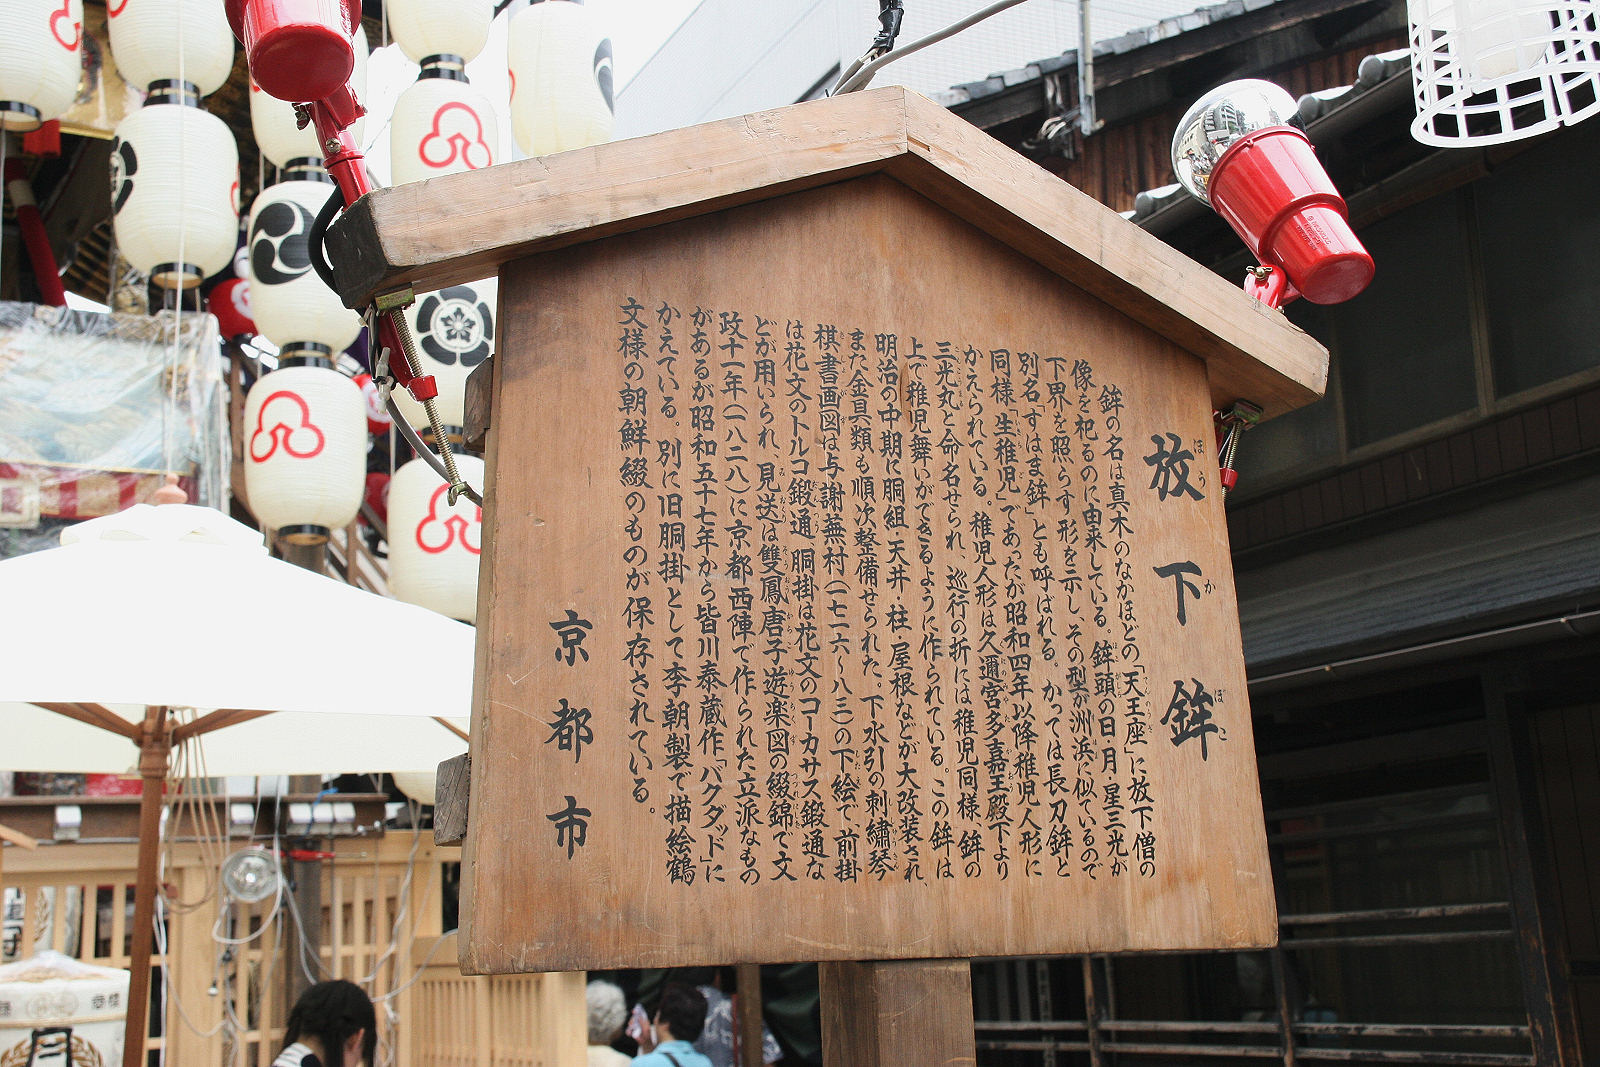 放下鉾
鉾の名は真木のなかほどの「天王座」に放下僧の
像を祀るのに由来している。鉾頭の日・月・星三光が
下界を照らす形を示し、その型が洲浜に似ているので
別名「すはま鉾」とも呼ばれる。かっては長刀鉾と
同様「生稚児」であったが昭和四年以降稚児人形に
かえられている。稚児人形は久邇宮多嘉王殿下より
三光丸と命名せられ、巡行の折には稚児同様 鉾の
上で稚児舞いができるように作られている。この鉾は
明治の中期に胴組・天井・柱・屋根などが大改装され、
また金具類も順次整備せられた。下水引の刺繡琴
棋書画図は与謝蕪村(一七一六〜八三)の下絵で 前掛
は花文のトルコ鍛通 胴掛は花文のコーカサス鍛通な
どが用いられ、見送は雙鳳唐子遊楽図の綴錦で 文
政十一年(一八二八)に京都西陣で作られた立派なもの
があるが昭和五十七年から皆川泰蔵作「バクダッド」に
かえている。別に旧胴掛として李朝製で描絵鶴
文様の朝鮮綴のものが保存されている。
京都市